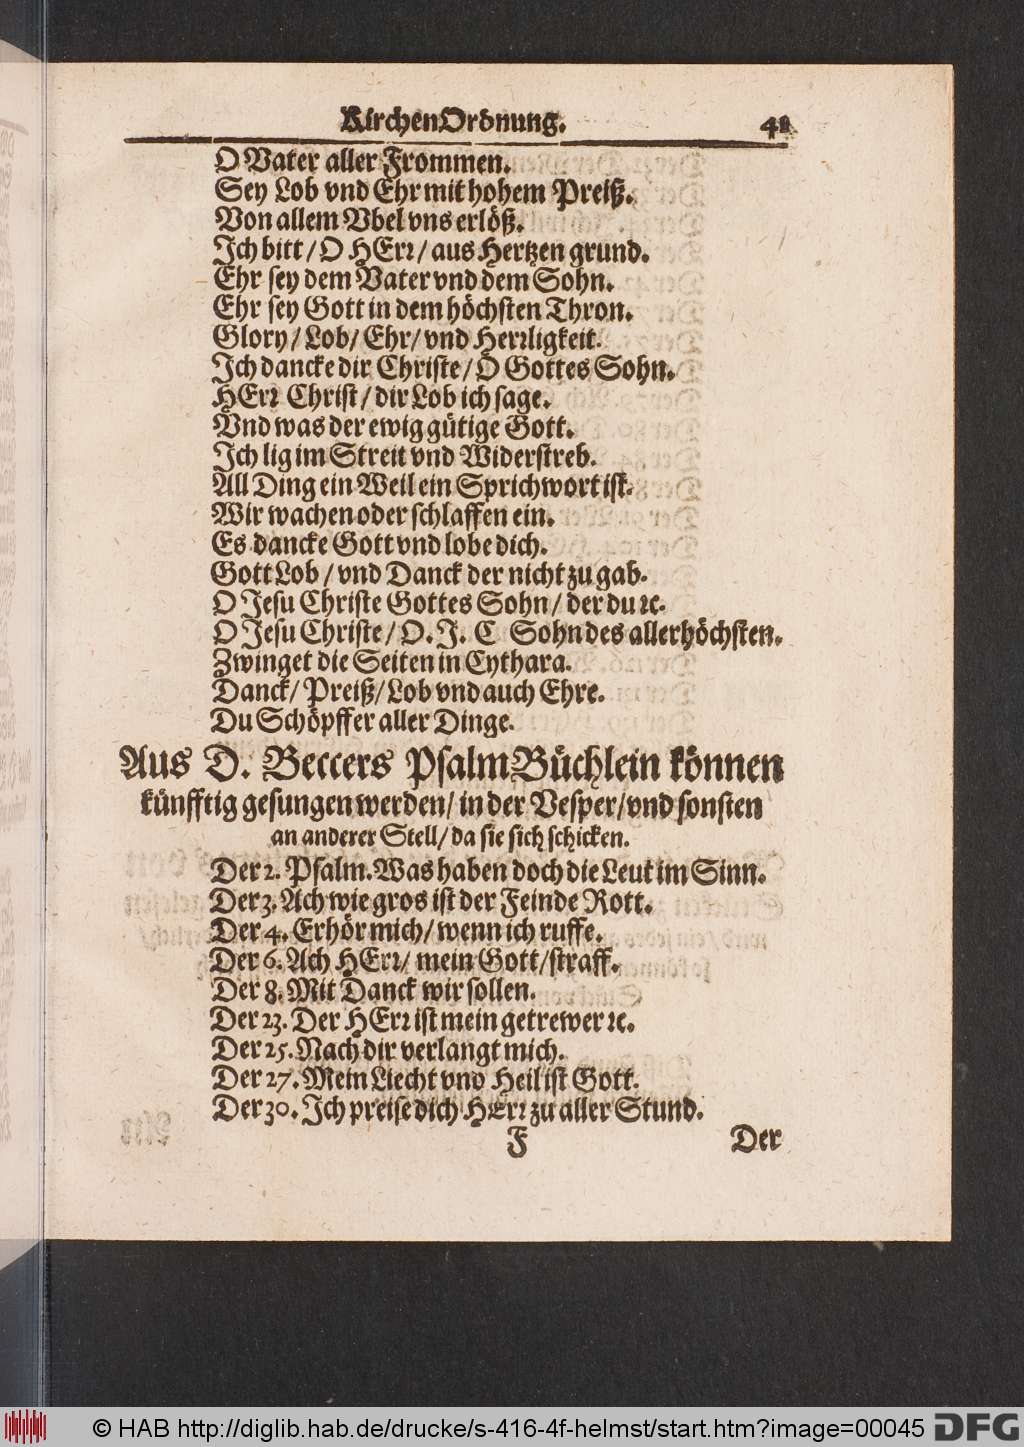 KirchenOrdnung. 41
O Vater aller Frommen.
Sey Lob vnd Ehr mit hohem Preiß.
Von allem Vbel vns erlöß.
Ich bitt / O HErr / aus Hertzen grund.
Ehr sey dem Vater vnd dem Sohn.
Ehr sey Gott in dem höchsten Thron.
Glory / Lob / Ehr / vnd Herrligkeit.
Ich dancke dir Christe / O Gottes Sohn.
HErr Christ / dir Lob ich sage.
Vnd was der ewig gütige Gott.
Ich lig im Streit vnd Widerstreb.
All Ding ein Weil ein Sprichwort ist.
Wir wachen oder schlaffen ein.
Es dancke Gott vnd lobe dich.
Gott Lob / vnd Danck der nicht zu gab.
O Jesu Christe Gottes Sohn / der du ꝛc.
O Jesu Christe / O. J. C Sohn des allerhöchsten.
Zwinget die Seiten in Cythara.
Danck / Preiß / Lob vnd auch Ehre.
Du Schöpffer aller Dinge.
Aus D. Beccers PsalmBüchlein können
künfftig gesungen werden / in der Vesper / vnd sonsten
an anderer Stell / da sie sich schicken.
Der 2. Psalm. Was haben doch die Leut im Sinn.
Der 3. Ach wie gros ist der Feinde Rott.
Der 4. Erhör mich / wenn ich ruffe.
Der 6. Ach HErr / mein Gott / straff.
Der 8. Mit Danck wir sollen.
Der 23. Der HErr ist mein getrewer ꝛc.
Der 25. Nach dir verlangt mich.
Der 27. Mein Liecht vnd Heil ist Gott.
Der 30. Ich preise dich HErr zu aller Stund.
F Der
© HAB http://diglib.hab.de/drucke/s-416-4f-helmst/start.htm?image=00045 DFG